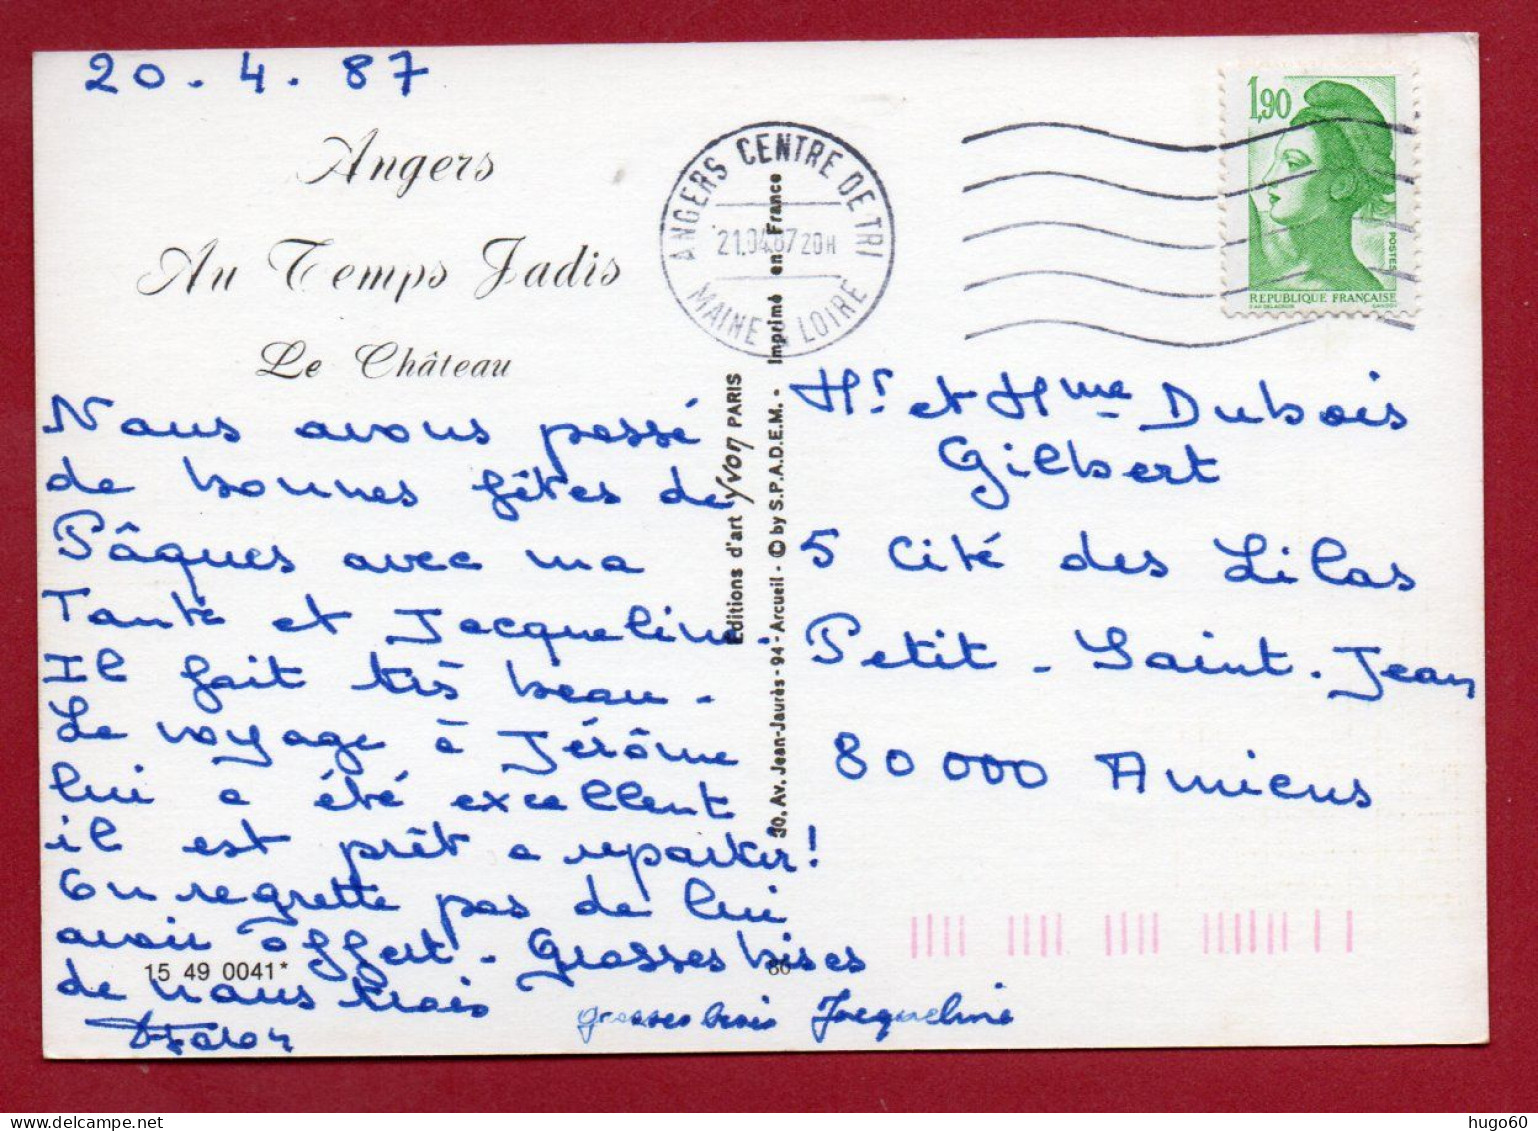 20.4.87
Angers
Au Temps Jadis
Le Château
Nous avons passé
de bonnes fêtes de
Pâques avec ma
Tante et Jacqueline.
Il fait très beau.
Le voyage à Jérôme
lui a été excellent
il est prêt a repartir!
On regrette pas de lui
avoir offert. Grosses bises
de nous trois
15 49 0041*
86
grosses bisis Jacqueline
Editions d'art YVON PARIS
30, Av. Jean-Jaurès - 94 - Arcueil - © by S.P.A.D.E.M. - Imprimé en France
ANGERS CENTRE DE TRI
21.04.87 20H
MAINE & LOIRE
1,90
POSTES
REPUBLIQUE FRANÇAISE
D'AP. DELACROIX GANDON
Mr. et Mme Dubois
Gilbert
5 Cité des Lilas
Petit-Saint-Jean
80 000 Amiens
hugo60